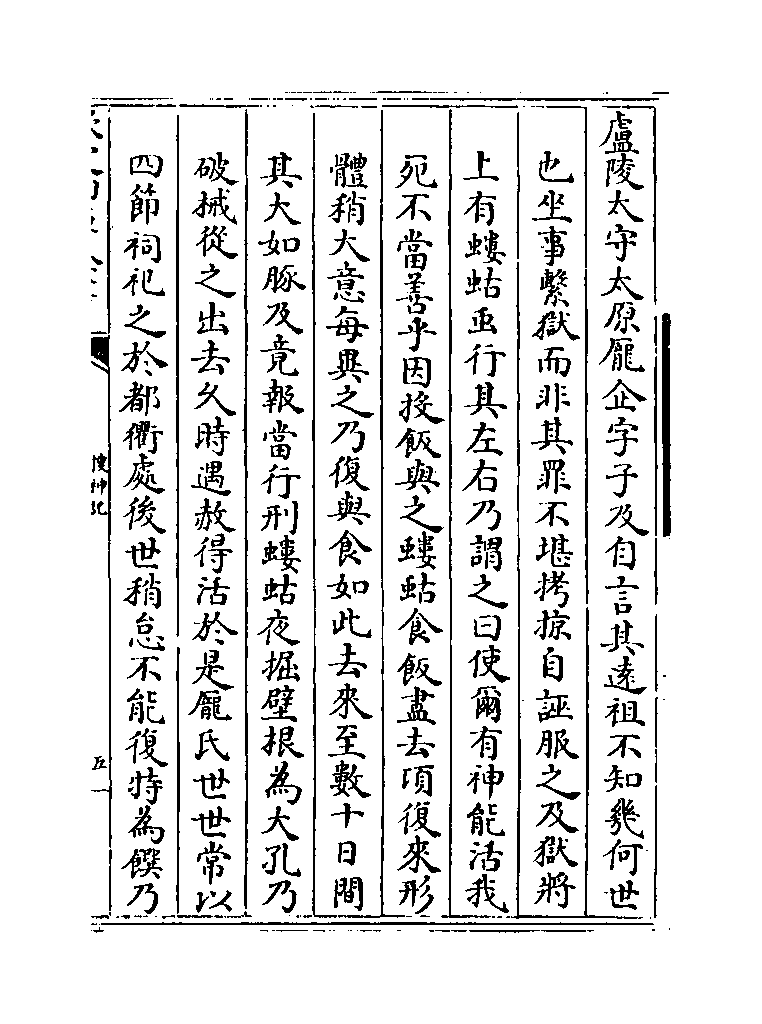 盧陵太守太原龐企字子及自言其遠祖不知幾何世
也坐事繫獄而非其罪不堪拷掠自誣服之及獄將
上有螻蛄䖝行其左右乃謂之曰使爾有神能活我
死不當善乎因投飯與之螻蛄食飯盡去項復來形
體稍大意每異之乃復與食如此去來至數十日間
其大如豚及竟報當行刑螻蛄夜掘壁根為大孔乃
破械從之出去久時遇赦得活於是龐氏世世常以
四節祠祀之於都衢處後世稍怠不能復特為饌乃
搜神記